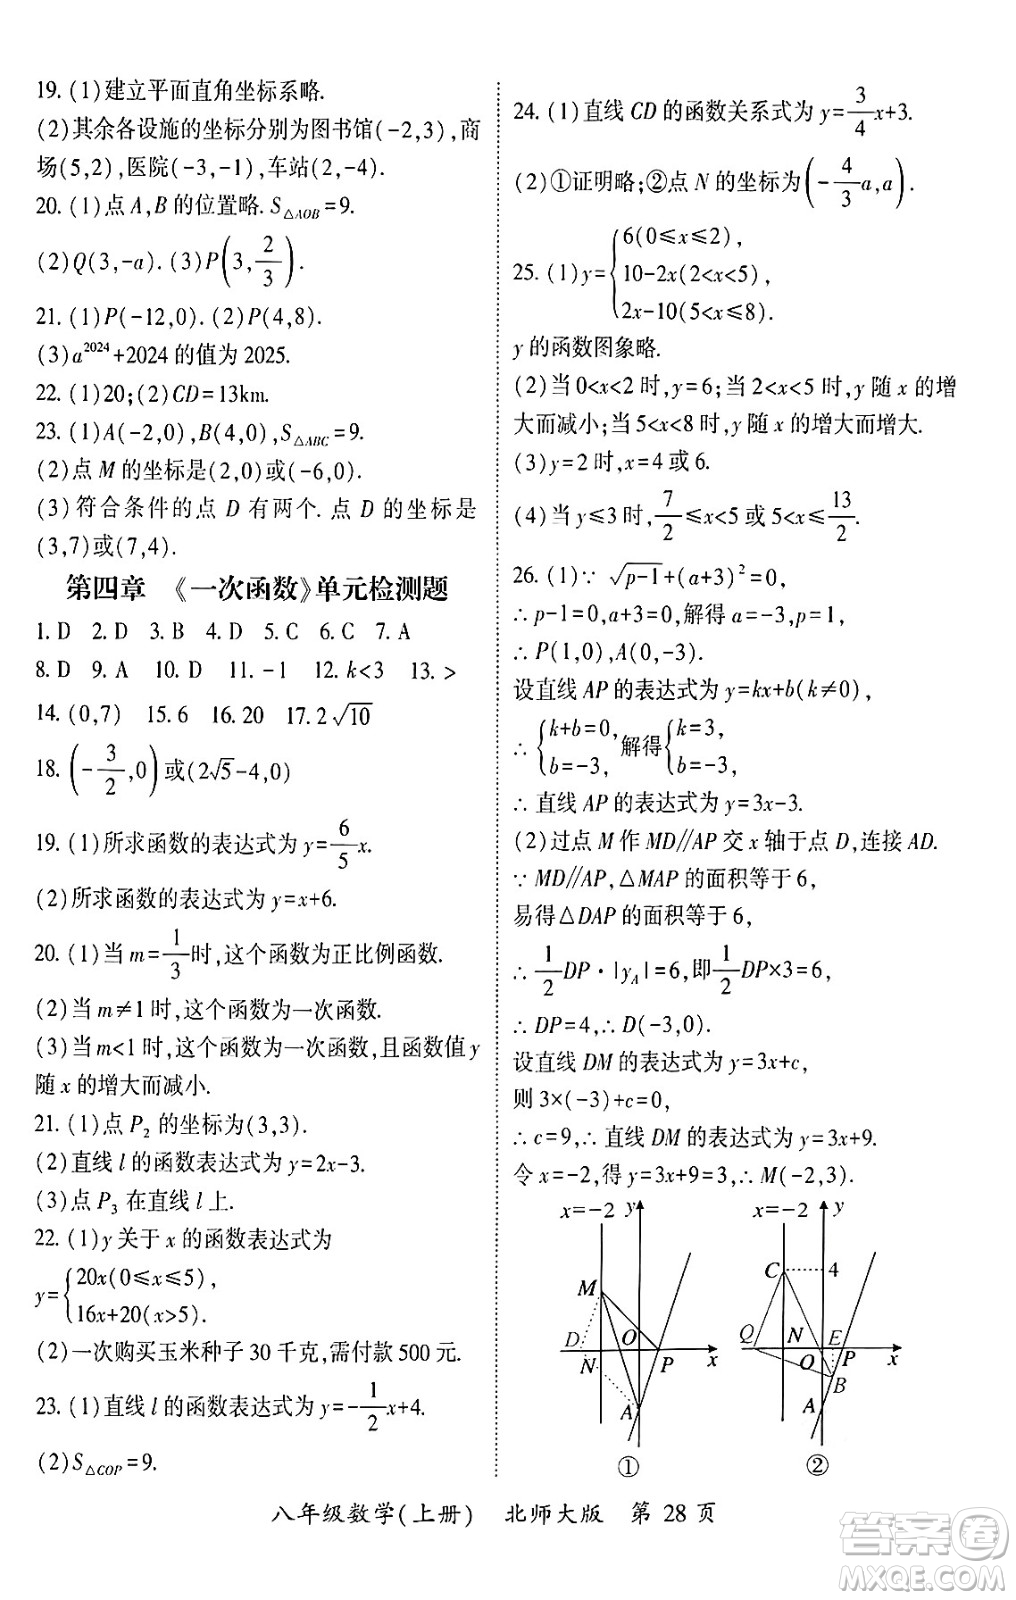 19. (1)建立平面直角坐标系略.
(2)其余各设施的坐标分别为图书馆(-2,3),商
场(5,2),医院(-3,-1),车站(2,-4).
20. (1)点A,B的位置略. S△AOB=9.
(2)Q(3,-a). (3)P(3, 2/3).
21. (1)P(-12,0). (2)P(4,8).
(3)a²⁰²⁴+2024的值为2025.
22. (1)20;(2)CD=13km.
23. (1)A(-2,0),B(4,0),S△ABC=9.
(2)点M的坐标是(2,0)或(-6,0).
(3)符合条件的点D有两个. 点D的坐标是
(3,7)或(7,4).
第四章 《一次函数》单元检测题
1. D 2. D 3. B 4. D 5. C 6. C 7. A
8. D 9. A 10. D 11. -1 12. k<3 13. >
14. (0,7) 15. 6 16. 20 17. 2√10
18. (-3/2,0)或(2√5-4,0)
19. (1)所求函数的表达式为y=6/5x.
(2)所求函数的表达式为y=x+6.
20. (1)当m=1/3时,这个函数为正比例函数.
(2)当m≠1时,这个函数为一次函数.
(3)当m<1时,这个函数为一次函数,且函数值y
随x的增大而减小.
21. (1)点P₂的坐标为(3,3).
(2)直线l的函数表达式为y=2x-3.
(3)点P₃在直线l上.
22. (1)y关于x的函数表达式为
y={20x(0≤x≤5),
16x+20(x>5).
(2)一次购买玉米种子30千克,需付款500元.
23. (1)直线l的函数表达式为y=-1/2x+4.
(2)S△COP=9.
24. (1)直线CD的函数关系式为y=3/4x+3.
(2)①证明略;②点N的坐标为(-4/3a,a).
25. (1)y={6(0≤x≤2),
10-2x(2<x<5),
2x-10(5<x≤8).
y的函数图象略.
(2)当0<x<2时,y=6;当2<x<5时,y随x的增
大而减小;当5<x<8时,y随x的增大而增大.
(3)y=2时,x=4或6.
(4)当y≤3时,7/2≤x<5或5<x≤13/2.
26. (1)∵√p-1+(a+3)²=0,
∴p-1=0,a+3=0,解得a=-3,p=1,
∴P(1,0),A(0,-3).
设直线AP的表达式为y=kx+b(k≠0),
∴{k+b=0, b=-3, 解得{k=3, b=-3,
∴直线AP的表达式为y=3x-3.
(2)过点M作MD//AP交x轴于点D,连接AD.
∵MD//AP,△MAP的面积等于6,
易得△DAP的面积等于6,
∴1/2DP·|yA|=6,即1/2DP×3=6,
∴DP=4,∴D(-3,0).
设直线DM的表达式为y=3x+c,
则3×(-3)+c=0,
∴c=9,∴直线DM的表达式为y=3x+9.
令x=-2,得y=3x+9=3,∴M(-2,3).
x=-2 y
M
D O
N P x
A
①
x=-2 y
C 4
Q N E
O P x
B
A
②
八年级数学(上册) 北师大版 第28页
答案圈
MXQE.COM